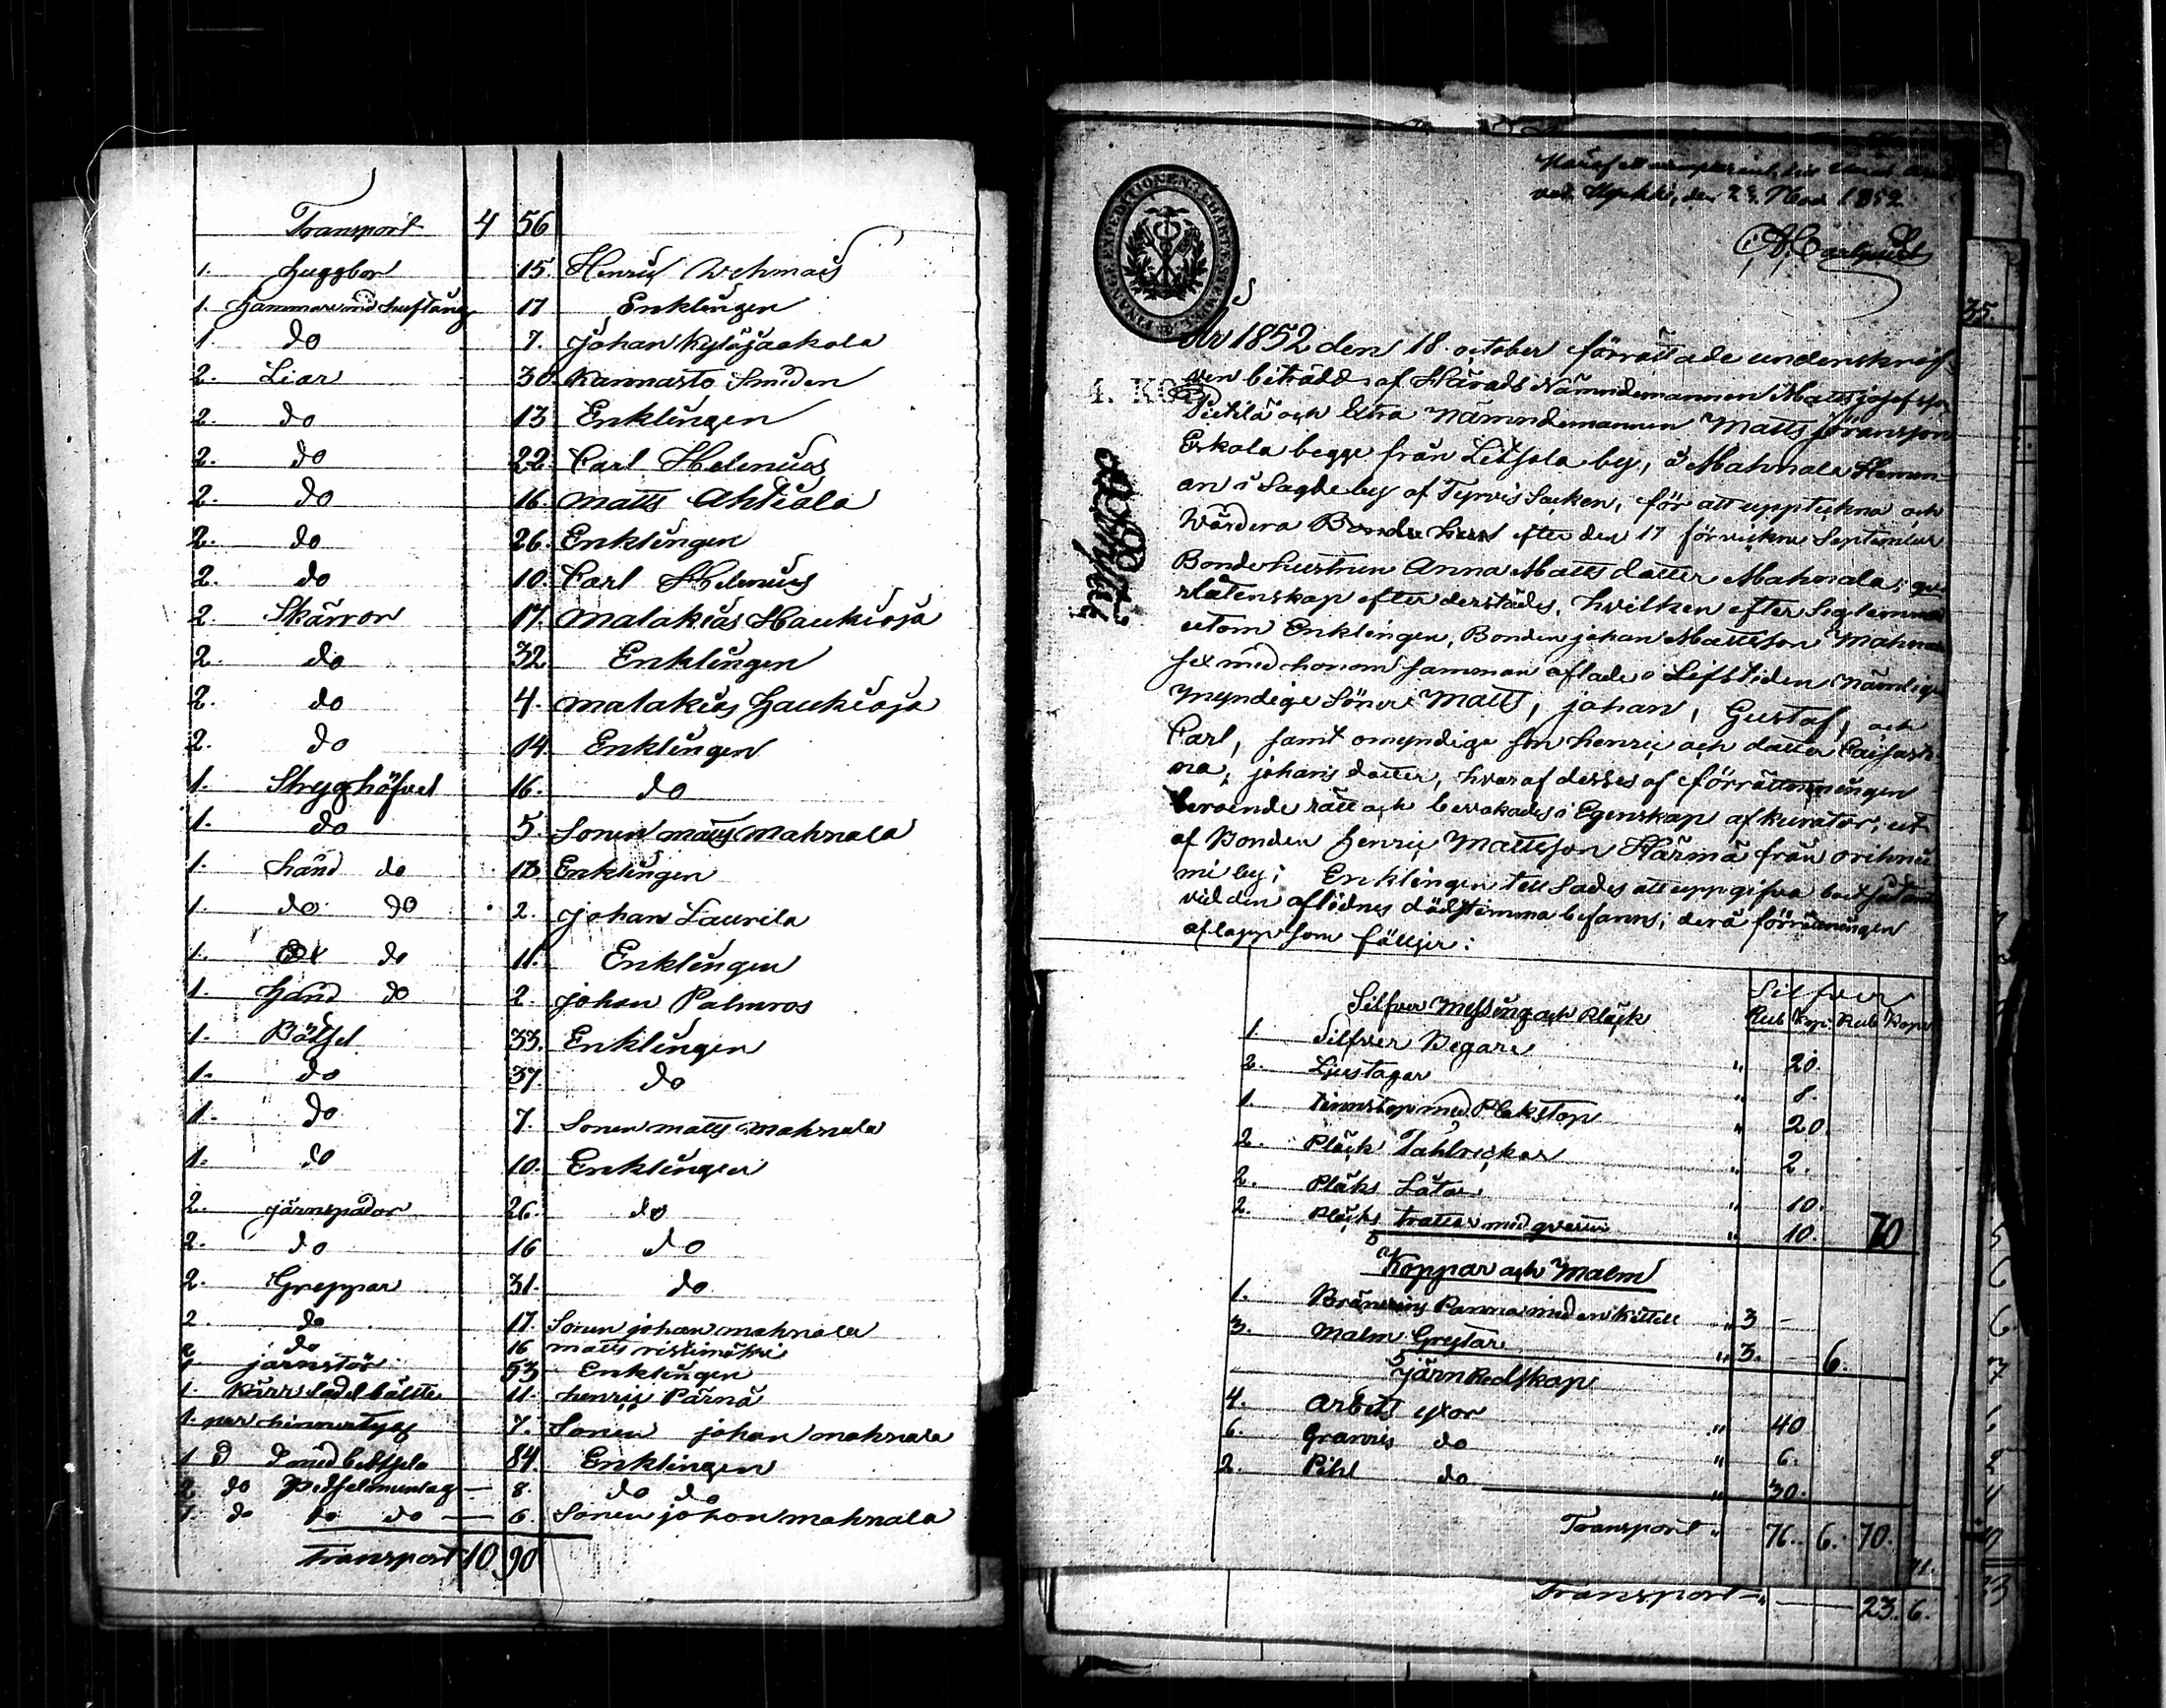 Transport 4 56
1. Huggbor 15. Henric Wehmais
1. Hammare med huftång 17 Enklingen
1. do 7. Johan Kyläjaakola
2. Liar 30. Kannasto Smeden
2. do 13 Enklingen
2. do 22. Carl Helenius
2. do 16. Matts Ahtiala
2. do 26. Enklingen
2. do 10. Carl Helenius
2. Skäror 17. Malakias Haukioja
2. do 32 Enklingen
2. do 4. Malakias Haukioja
2. do 14. Enklingen
1. Stryghöfvel 16. do
1. do 5. Sonen Matts Mahnala
1. hand do 13 Enklingen
1. do do 2. Johan Laurila
1. do 11. Enklingen
1. Hand do 2. Johan Palmros
1. Bötsel 33. Enklingen
1. do 37. do
1. do 7. Sonen Matts Mahnala
1. do 10. Enklingen
2. järnspador 26. do
2. do 16 do
2. Greppar 31. do
2. do 17. Sonen Johan Mahnala
2 do 16 Matts Ristimäki
1 järnstör 53 Enklingen
1. Kärr Sadel bälte 11. Henric Pärnä
1. par 7. Sonen Johan Mahnala
1 d d med betsel 84. Enklingen
2 do 8. do do
1. do do do 6. Sonen Johan Mahnala
Transport 10. 90
den 23. Nov. 1852
FINANCE EXPEDITIONEN CHARTÆ SIGILLATÆ
4. KOP.
År 1852 den 18. october förrättade underskrif-
ven biträdd af Härads Nämndemannen Matts Josefsson
Pietilä och Extra Nämndemannen Matts Jöransson
Eskola begge från Litsola by, å Mahnala Hemm-
an i Sagde by af Tyrvis Socken, för att uppteckna och
Värdera efter den 17 förvekne September
Bondehustrun Anna Matts dotter Mahnala, qvar
låtenskap efter derstädes, hvilken efter Sig lemnat
utom Enklingen, Bonden Johan Mattsson Mahnala
sex med honom samman aflade i Lifstiden nämlige
myndige Söner Matts, Johan, Gustaf, och
Carl, samt omyndige son Henric och dotter
na, Johans dotter, hvaraf desses af förrättningen
beroende rätt och bevakades i Egenskap af Kurator, ut
af Bonden Henric Mattsson Härmä från
mi by; Enklingen till Sades att uppgifva boet sådant
vid den aflidnes dödstimma befanns; derå förrättningen
aflopp som följer:
Silfver
Silfver Messing och Pläck Rub Kop. Rub Kop.
1. Silfver Begare " 20.
2. Ljustagar " 8.
1. tinnstop med Plekstop " 20.
2. Pläck Tahlrickar " 2.
2. Pläks Låtar " 10.
2. Pläcks trattar med " 10. 70
Koppar och Malm
1. Bränvins Panna med en Kittell " 3 -
3. Malm Grytar " 3. 6.
Järn Redskap
4. Arbets yxor " 40
6. Granris do " 6.
2. Pihl do " 30.
Transport " 76. 6. 70.
Transport " 23. 6.